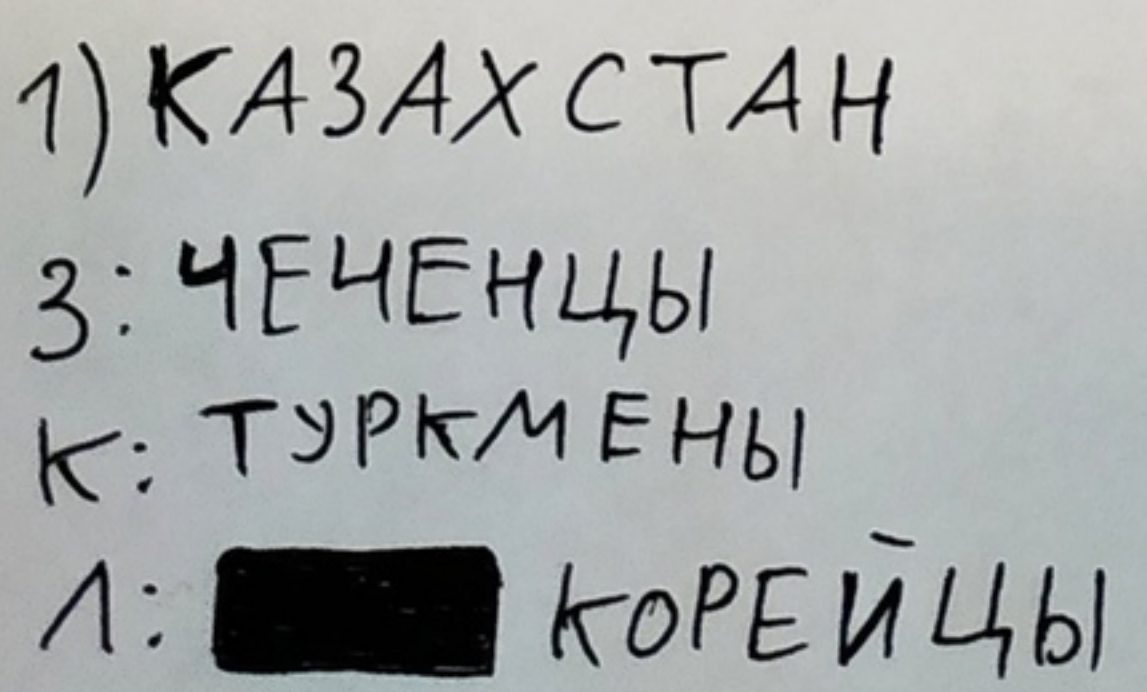 1) КАЗАХСТАН
З: ЧЕЧЕНЦЫ
К: ТУРКМЕНЫ
Л: КОРЕЙЦЫ